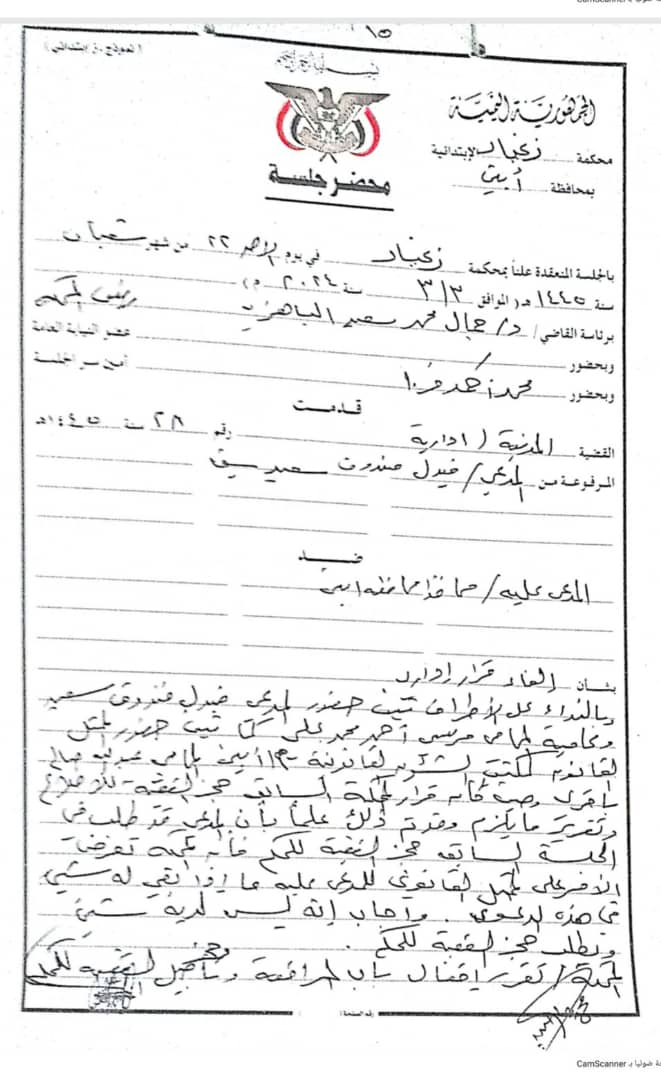 ١٥
(نموذج ز. إبتدائي)
بسم الله الرحمن الرحيم
الجمهورية اليمنية
محكمة زنجبار الإبتدائية
بمحافظة أبين
محضر جلسة
بالجلسة المنعقدة علناً بمحكمة زنجبار في يوم الاحد ٢٢ من شهر شعبان
سنة ١٤٤٥ هـ (الموافق ٣/٣ سنة ٢٠٢٤ م)
برئاسة القاضي / د/ جمال محمد سعيد رئيس المحكمة
وبحضور / عضو النيابة العامة
وبحضور محمد أحمد أمين سر الجلسة
قدمت
القضية المدنية / ادارية رقم ٢٨ سنة ١٤٤٥هـ
المرفوعة من المدعي / فيدل مندوق سعيد
ضد
المدعى عليه / محافظ محافظة ابين
بشأن إلغاء قرار إداري
وبالنداء على الأطراف تبين حضور المدعي فيدل مندوق سعيد
ومحاميه المحامي مرسي أحمد محمد علي كما تبين حضور الممثل
القانوني لمكتب الشؤون القانونية م/أبين المحامي عبدالله صالح
وحيث كان قرار المحكمة السابق حجز القضية للاطلاع
وتقرير ما يلزم وقدم ذلك علماً بأن المدعي قد طلب في
الجلسة السابقة حجز القضية للحكم فإنه
على الممثل القانوني للمدعى عليه ما إذا بقي له شيء
في هذه الدعوى. وأجاب إنه ليس لديه شيء
ويطلب حجز القضية للحكم.
المحكمة / تقرر إقفال باب المرافعة وحجز القضية للحكم
رقم الصفحة ( )
CamScanner